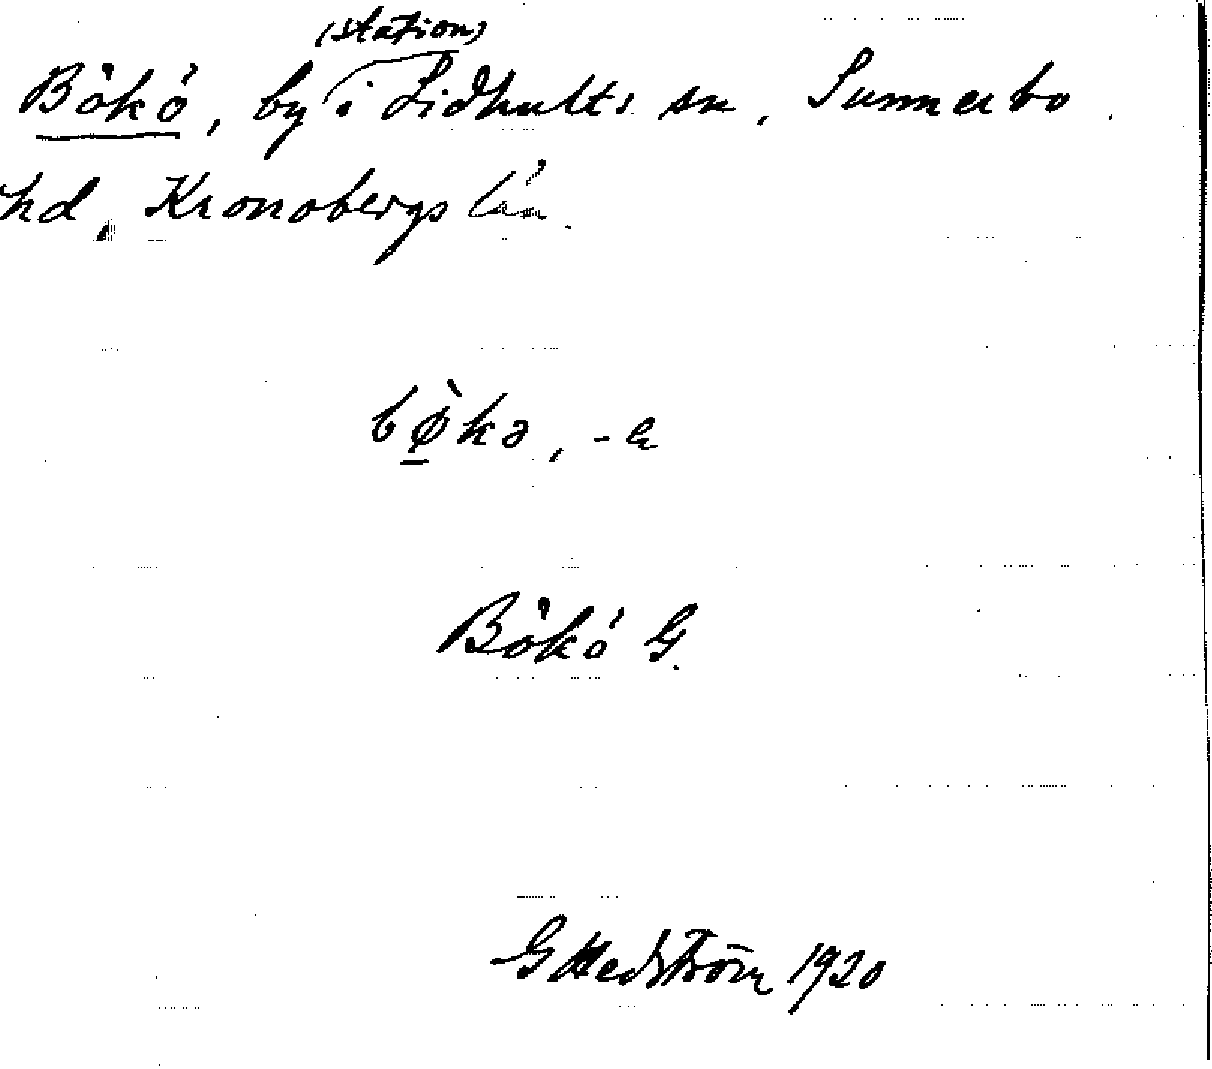 (station)
Bökö, by i Lidhults sn, Sunnerbo
hd, Kronobergs län.
bø̀kə, -a
Bökö G.
G Hedström 1920